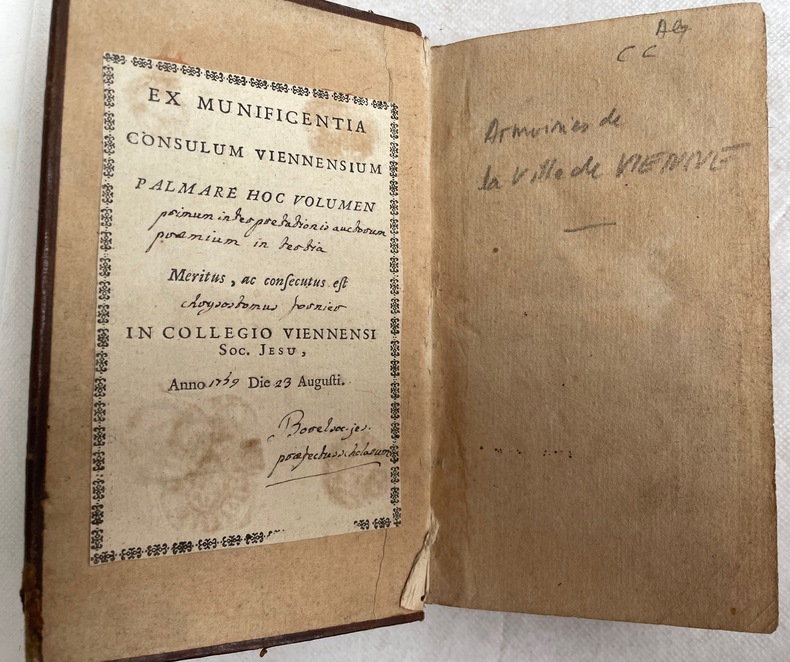 EX MUNIFICENTIA
CONSULUM VIENNENSIUM
PALMARE HOC VOLUMEN
primum interpretationis auctorum
præmium in tertia
Meritus, ac consecutus est
chrysostomus
IN COLLEGIO VIENNENSI
Soc. JESU,
Anno 1759 Die 23 Augusti.
soc. jes.
præfectus scholarum
C C
Armoiries de
la Ville de VIENNE